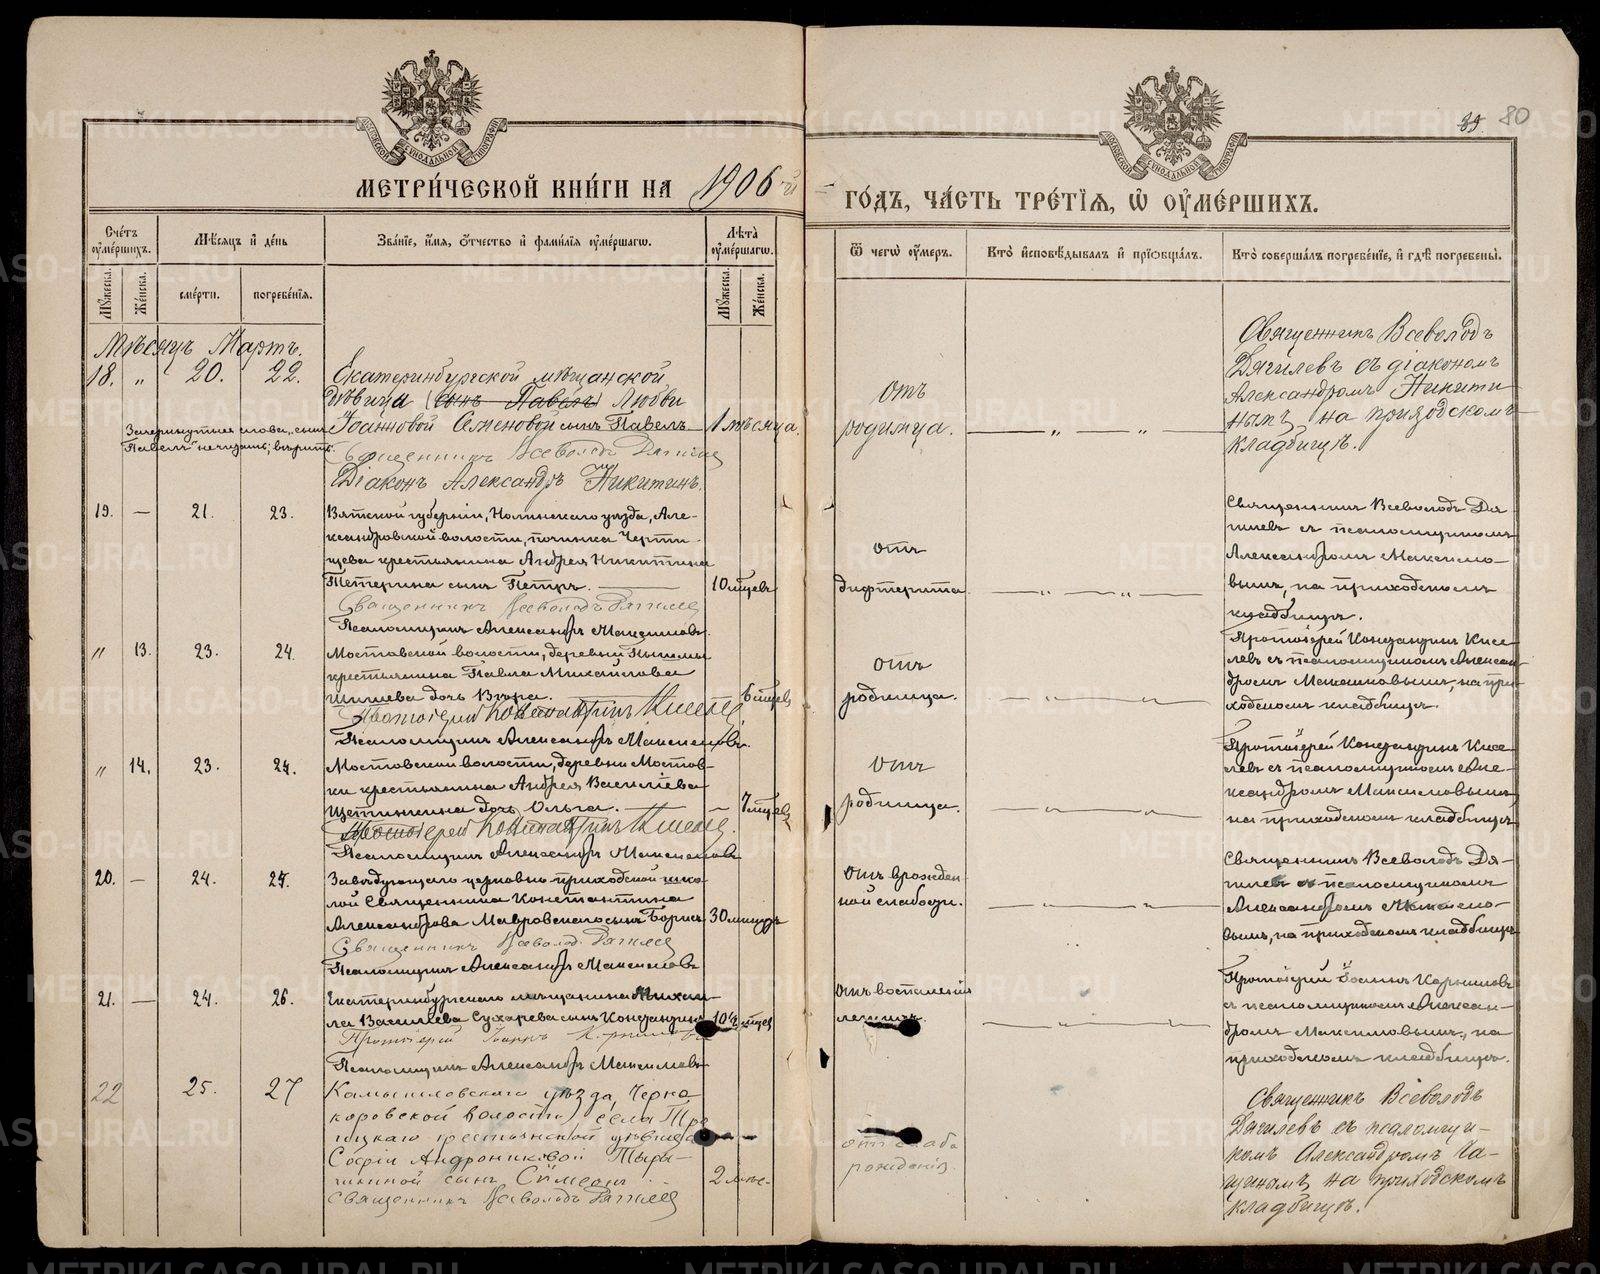 МЕТРИ́ЧЕСКОЙ КНИ́ГИ НА 1906 й
ГО́ДЪ, ЧА́СТЬ ТРЕ́ТЇЯ, Ѡ҆ ОУ҆МЕ́РШИХЪ.
89 80
Сче́тъ оу҆ме́ршихъ.
Мѣ́сяцъ и҆ де́нь
Зва́нїе, и҆́мя, ѻ҆́тчество и҆ фами́лїя оу҆ме́ршагѡ.
Лѣ́та оу҆ме́ршагѡ.
Ѿ чегѡ̀ оу҆́меръ.
Кто̀ и҆сповѣ́дывалъ и҆ прїѡбща́лъ.
Кто̀ соверша́лъ погребе́нїе, и҆ гдѣ̀ погребены̀.
Мꙋ́жеска.
Же́нска.
сме́рти.
погребе́нїя.
Мꙋ́жеска.
Же́нска.
Мѣсяцъ Мартъ.
18. „ 20. 22.
Екатеринбургской мѣщанской
дѣвицы (сынъ Павелъ) Любви
Іоанновой Семеновой сынъ Павелъ
1 мѣсяца.
Зачеркнутыя слова „сынъ
Павелъ" не читать; вѣрить.
Священникъ Всеволодъ Дягилев
Діаконъ Александръ Никитинъ.
отъ
родимца.
Священникъ Всеволодъ
Дягилевъ съ діакономъ
Александромъ Никити-
нымъ, на приходскомъ
кладбищѣ.
19. — 21. 23.
Вятской губерніи, Нолинскаго уѣзда, Але-
ксандровской волости, починка Черти-
щева крестьянина Андрея Никитина
Тетерина сынъ Петръ.
10 мѣсяцевъ
Священникъ Всеволодъ Дягилев
Псаломщикъ Александръ Максимовъ.
отъ
дифтерита
Священникъ Всеволодъ Дя-
гилевъ съ псаломщикомъ
Александромъ Максимо-
вымъ, на приходскомъ
кладбищѣ.
„ 13. 23. 24.
Мостовской волости, деревни Пышмы
крестьянина Павла Михайлова
дочь Вѣра.
6 мѣсяцев
Протоіерей Константинъ Киселев
Псаломщикъ Александръ Максимовъ.
отъ
родимца.
Протоіерей Константинъ Кисе-
левъ съ псаломщикомъ Алексан-
дромъ Максимовымъ, на при-
ходскомъ кладбищѣ.
„ 14. 23. 24.
Мостовской волости, деревни Мостов-
ки крестьянина Андрея Васильева
Щетинкина дочь Ольга.
7 мѣсяцев
Протоіерей Константинъ Киселев.
Псаломщикъ Александръ Максимовъ
отъ
родимца.
Протоіерей Константинъ Кисе-
левъ съ псаломщикомъ Але-
ксандромъ Максимовымъ,
на приходскомъ кладбищѣ
20. — 24. 25.
Завѣдующаго церковно-приходской шко-
лой Священника Константина
Александрова Мавровскаго сынъ Борисъ
30 минутъ
Священникъ Всеволод. Дягилев
Псаломщикъ Александръ Максимовъ
отъ врожден-
ной слабости.
Священникъ Всеволодъ Дя-
гилевъ съ псаломщикомъ
Александромъ Максимо-
вымъ, на приходскомъ кладбищѣ
21. — 24. 26.
Екатеринбургскаго мѣщанина Михаи-
ла Васильева Сухарева сынъ Константинъ
Протоіерей Іоаннъ
Псаломщикъ Александръ Максимовъ
отъ воспаленія
легкихъ.
Протоіерей Іоаннъ Корниловъ
съ псаломщикомъ Алексан-
дромъ Максимовымъ, на
приходскомъ кладбищѣ.
22 25. 27
Камышловскаго уѣзда, Черно-
коровской волости, села Тро-
ицкаго крестьянской дѣвицы
Софіи Андрониковой
сынъ Сѵмеонъ
Священникъ Всеволодъ Дягилев
рожденія.
Священникъ Всеволодъ
Дягилевъ съ псаломщи-
комъ Александромъ
на приходскомъ
кладбищѣ.
METRIKI.GASO-URAL.RU